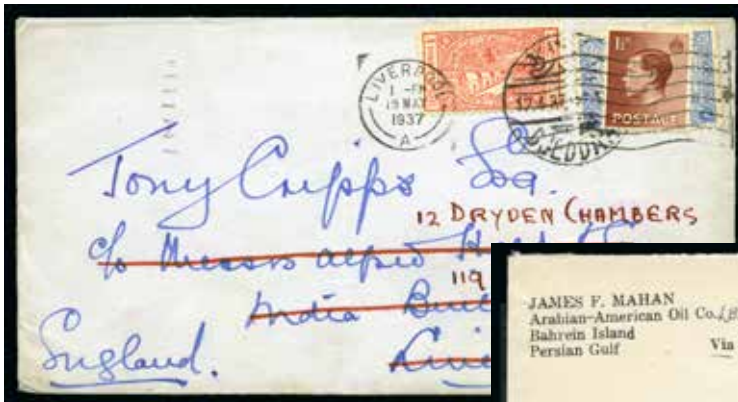 LIVERPOOL
1 - PM
19 MAY
1937
A
DJEDDAH
1½
POSTAGE
Tony Cripps Esq.
12 DRYDEN CHAMBERS
c/o Messrs Alfred
119
India
England.
JAMES F. MAHAN
Arabian-American Oil Co.
Bahrein Island
Persian Gulf
Via